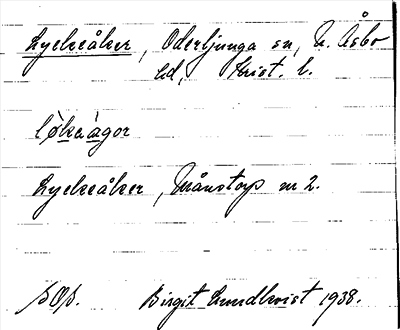 Lyckeåker, Oderljunga sn, N. Åsbo
hd, Krist. l.
lø̀kaàgor
Lyckeåker, Månstorp nr 2.
Birgit Lundkvist 1938.